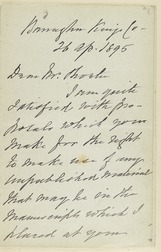 26 Ap. 1895
Dear Mr.
I am quite
satisfied with pro-
posals which you
make for the right
to make use of any
unpublished material
that may be in the
manuscripts which I
placed at your